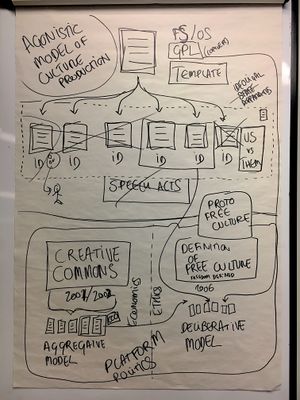 AGONISTIC
MODEL OF
CULTURE
PRODUCTION
FS/OS
GPL
TEMPLATE
US
VS
THEM
ID
ID
ID
ID
ID
SPEECH ACTS
PROTO
FREE
CULTURE
CREATIVE
COMMONS
2001/2002
DEFINITION
OF
FREE CULTURE
FREEDOM DEFINED
2006
ECONOMICS
ETHICS
AGGREGATIVE
MODEL
DELIBERATIVE
MODEL
PLATFORM
POLITICS